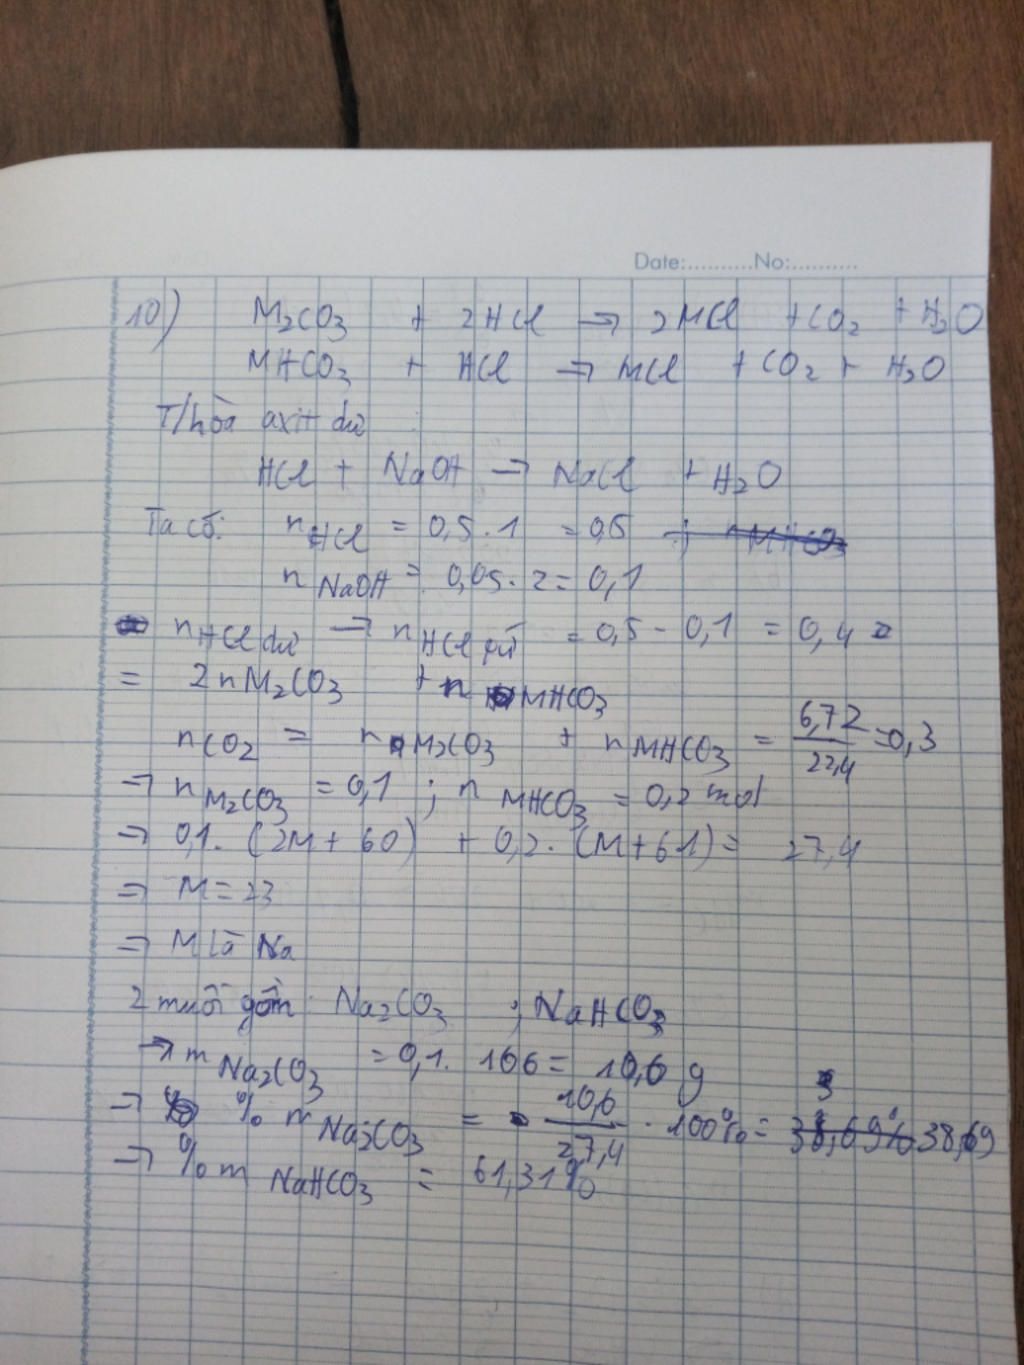 Date:..........No:..........
10) M2CO3 + 2HCl → 2MCl + CO2 + H2O
MHCO3 + HCl → MCl + CO2 + H2O
T/hòa axit dư
HCl + NaOH → NaCl + H2O
Ta có: nHCl = 0,5.1 = 0,5 ; nMHCO3
nNaOH = 0,05.2 = 0,1
nHCl dư → nHCl pứ = 0,5 - 0,1 = 0,4
= 2nM2CO3 + nMHCO3
nCO2 = nM2CO3 + nMHCO3 = 6,72/22,4 = 0,3
⇒ nM2CO3 = 0,1 ; nMHCO3 = 0,2 mol
⇒ 0,1. (2M + 60) + 0,2. (M+61) = 27,4
⇒ M = 23
⇒ M là Na
2 muối gồm: Na2CO3 ; NaHCO3
→ mNa2CO3 = 0,1. 106 = 10,6 g
⇒ % mNa2CO3 = 10,6/27,4 . 100% = 38,69% 38,69
⇒ % mNaHCO3 = 61,31%